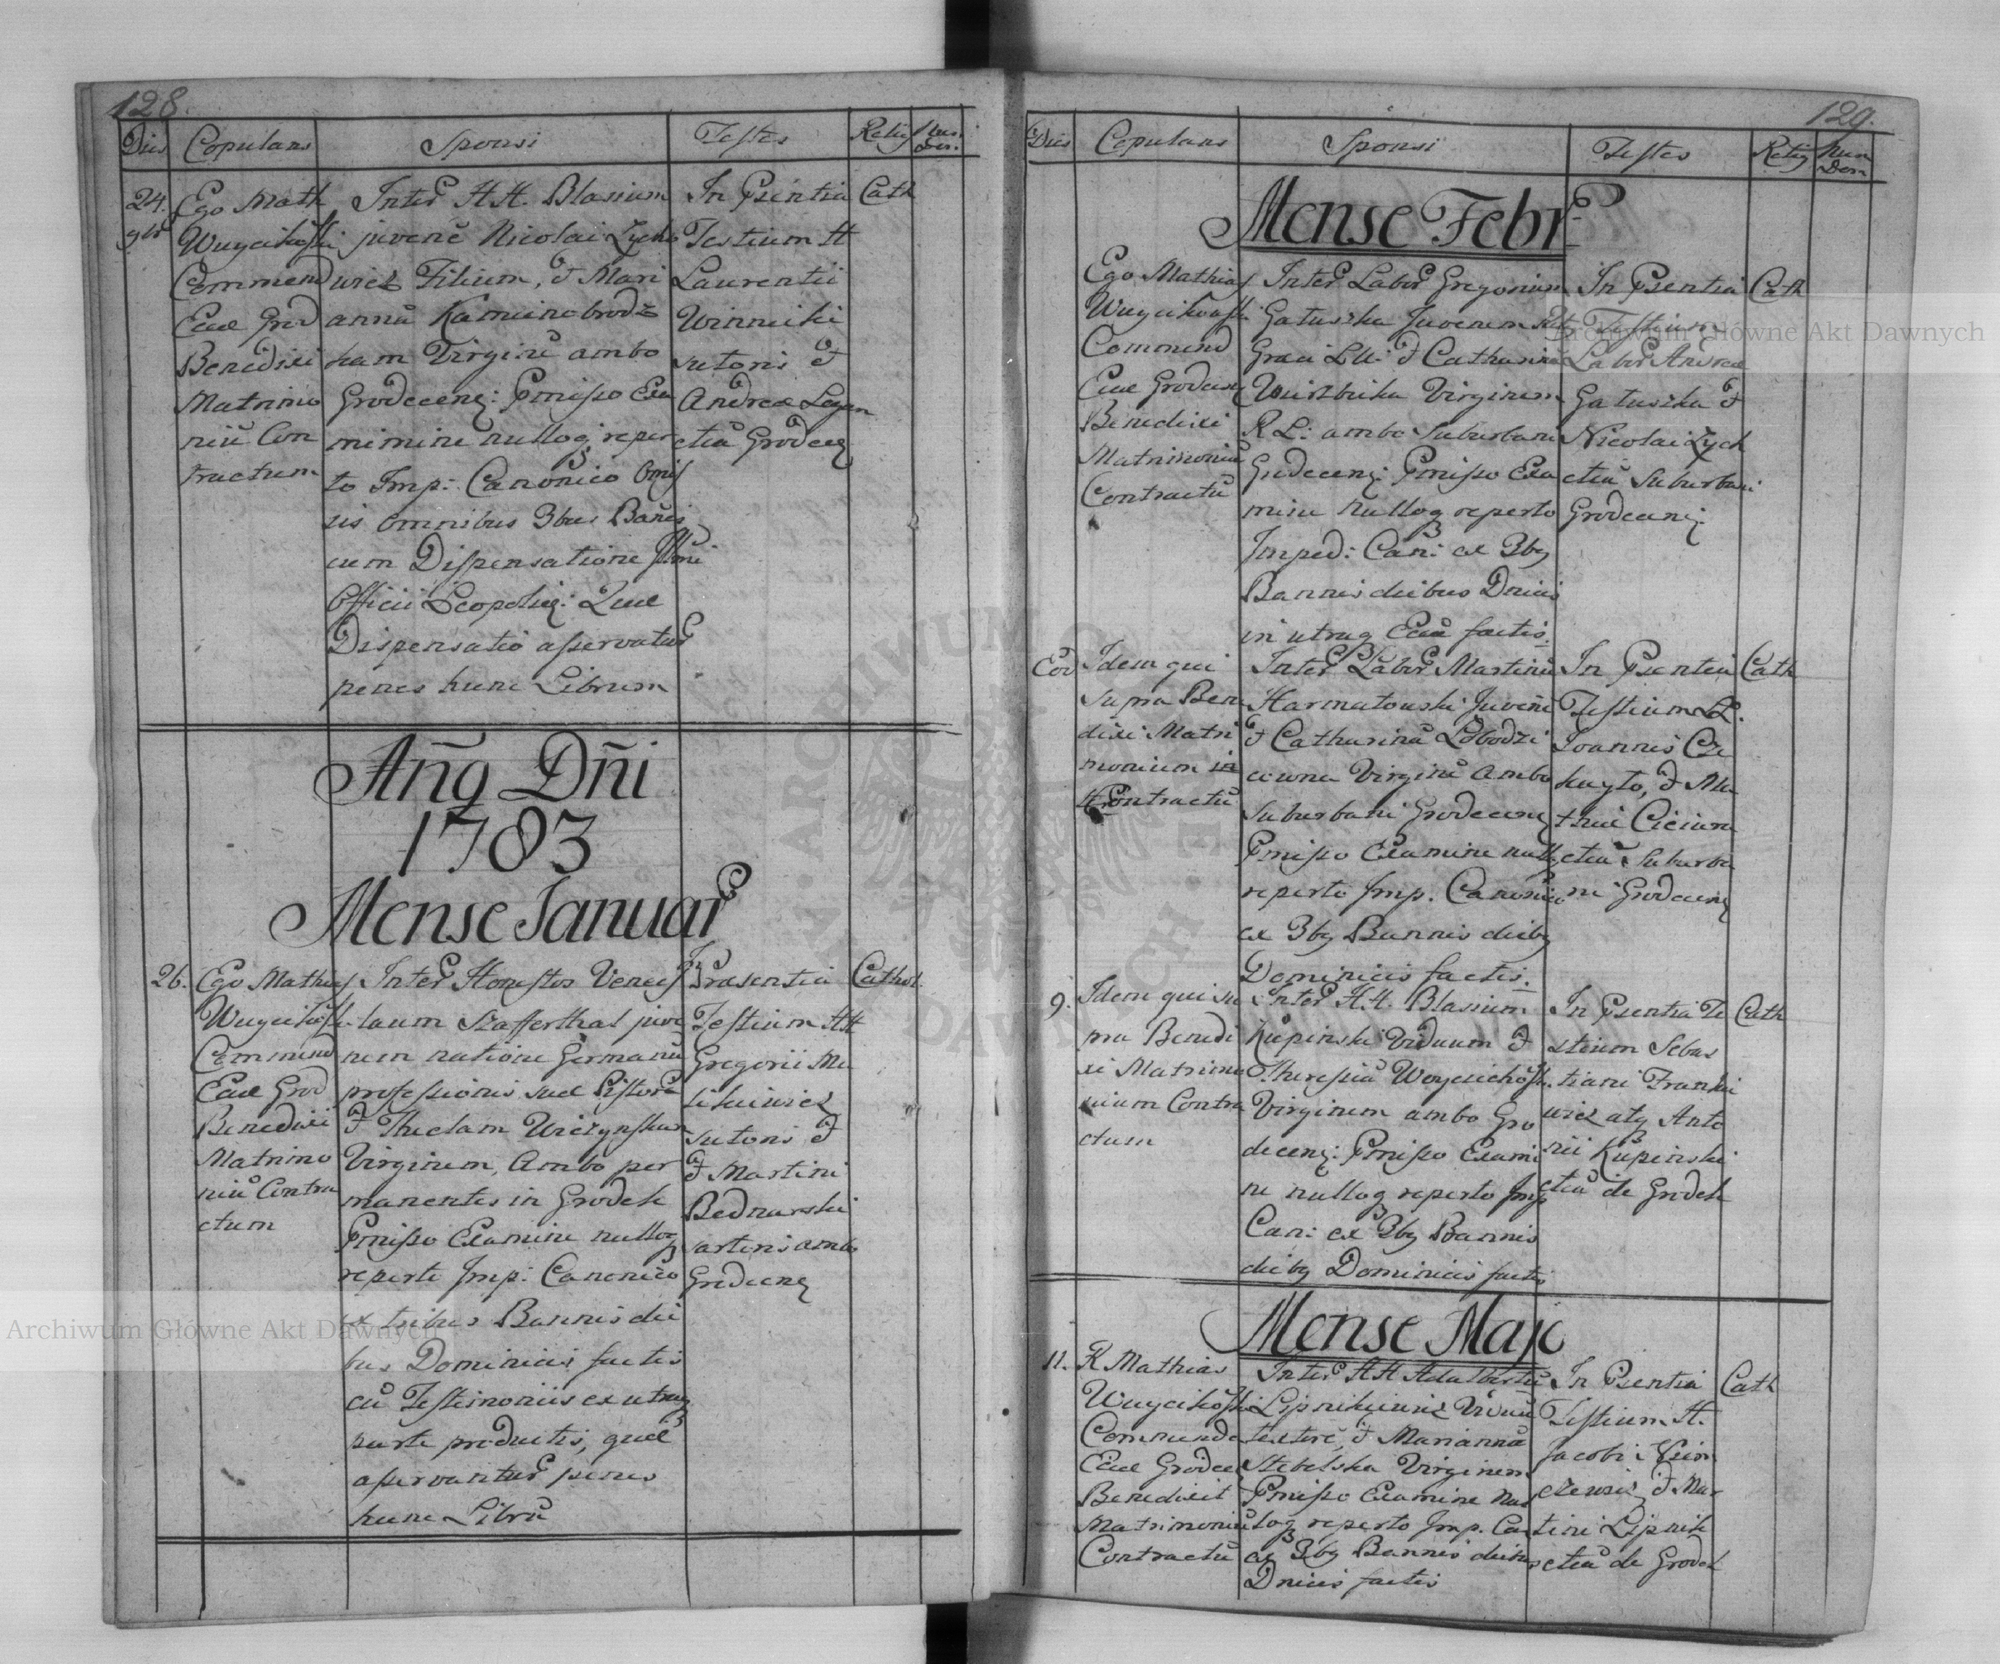 128.
Dies Copulans Sponsi Testes Relig Num Dom:
24.
9br
Ego Math
Wuycikowski
Commend
Eccae Grod
Benedixi
Matrimo
niũ Con
tractum
Inter H H. Blasium
juvenẽ Nicolai Zycho
wicz Filium, et Mari
annã Kamienobrodz
kam Virginẽ ambo
Grodecens: Pmisso Exa
mimine nulloq reper
to Imp: Canonico Omis
sis omnibus 3bus Bañis
cum Dispensatione Illmi
Officii Leopolien: Quae
Dispensatio asservatur
penes hunc Librum
In Psentia
Testium H
Laurentii
Winnicki
sutoris et
Andreae
ctiũ Grodecen
Cath
Añg Dñi
1783
Mense Januar
26.
Ego Mathias
Wuycikowski
Commend
Eccae Grod
Benedixi
Matrimo
niũ Contra
ctum
Inter Honestos Vences
laum Szafferthal juve
nem natione Germanũ
professionis suae Pistorẽ
et Theclam Wiezynskam
Virginem, Ambo per
manentes in Grodek
Pmisso Examine nulloq
reperto Imp: Canonico
ex tribus Bannis die
bus Dominicis factis
cũ Testimoniis ex utraq
parte productis, quae
asservantur penes
hunc Librũ
In Praesentia
Testium HH
Gregorii Mi
sikiewicz
sutoris et
et Martini
Bednarski
sartoris ambo
Grodecens
Cathol.
129.
Dies Copulans Sponsi Testes Relig Num Dom
Mense Febr
Ego Mathias
Wuycikowski
Commend
Eccae Grodecens
Benedixi
Matrimoniũ
Contractũ
Inter Labor Gregorium
Gatuszka Juvenem Ritus
Graeci LU: et Catharinã
Virginem
R L: ambo Suburbani
Grodecens: Pmisso Exa
mine Nulloq reperto
Imped: Can: ex 3bq
Bannis diebus Dnicis
in utraq Eccã factis.
In Psentia
Testium
Labor Andreae
Gatuszka et
Nicolai Zych
ctiũ Suburbani
Grodecens:
Cath
Eod
Idem qui
supra Bene
dixi Matri
monium in
Contractũ
Inter Labor Martinũ
Harmatowski Juvenẽ
et Catharinã Lobodzi
cowna Virginẽ Ambo
Suburbani Grodecens
Pmisso Examine nulloq
reperto Imp. Canonico
ex 3bq Bannis diebq
Dominicis factis.
In Psentia
Testium L.
Joannis Cze
kayto, et Ma
thiae Cicium
ctiũ Suburba
ni Grodecens
Cath
9.
Idem qui su
pra Benedi
xi Matrimo
nium Contra
ctum
Inter H.H. Blasium
Kupinski Viduum et
Theresiã Woyciechowsk
Virginem ambo Gro
decens: Pmisso Exami
ne nulloq reperto Imp
Can: ex 3bq Bannis
diebq Dominicis factis
In Psentia Te
stium Sebas
tiani Franki
wicz atq Anto
nii Kupinski
ctiũ de Grodek
Cath
Mense Maje
11.
R Mathias
Wuycikowski
Commenda
Eccae Grodec
Benedixit
Matrimoniũ
Contractũ
Inter HH Adalbertũ
Lipnikiewicz Viduũ
textorẽ, et Mariannã
Stebelska Virginem
Pmisso Examine Nul
loq reperto Imp. Can
ex 3bq Bannis diebus
Dnicis factis
In Psentia
Testium H.
Jacobi
et Mar
tini Lipnik
ctiũ de Grodek
Cath
Archiwum Główne Akt Dawnych
Archiwum Główne Akt Dawnych